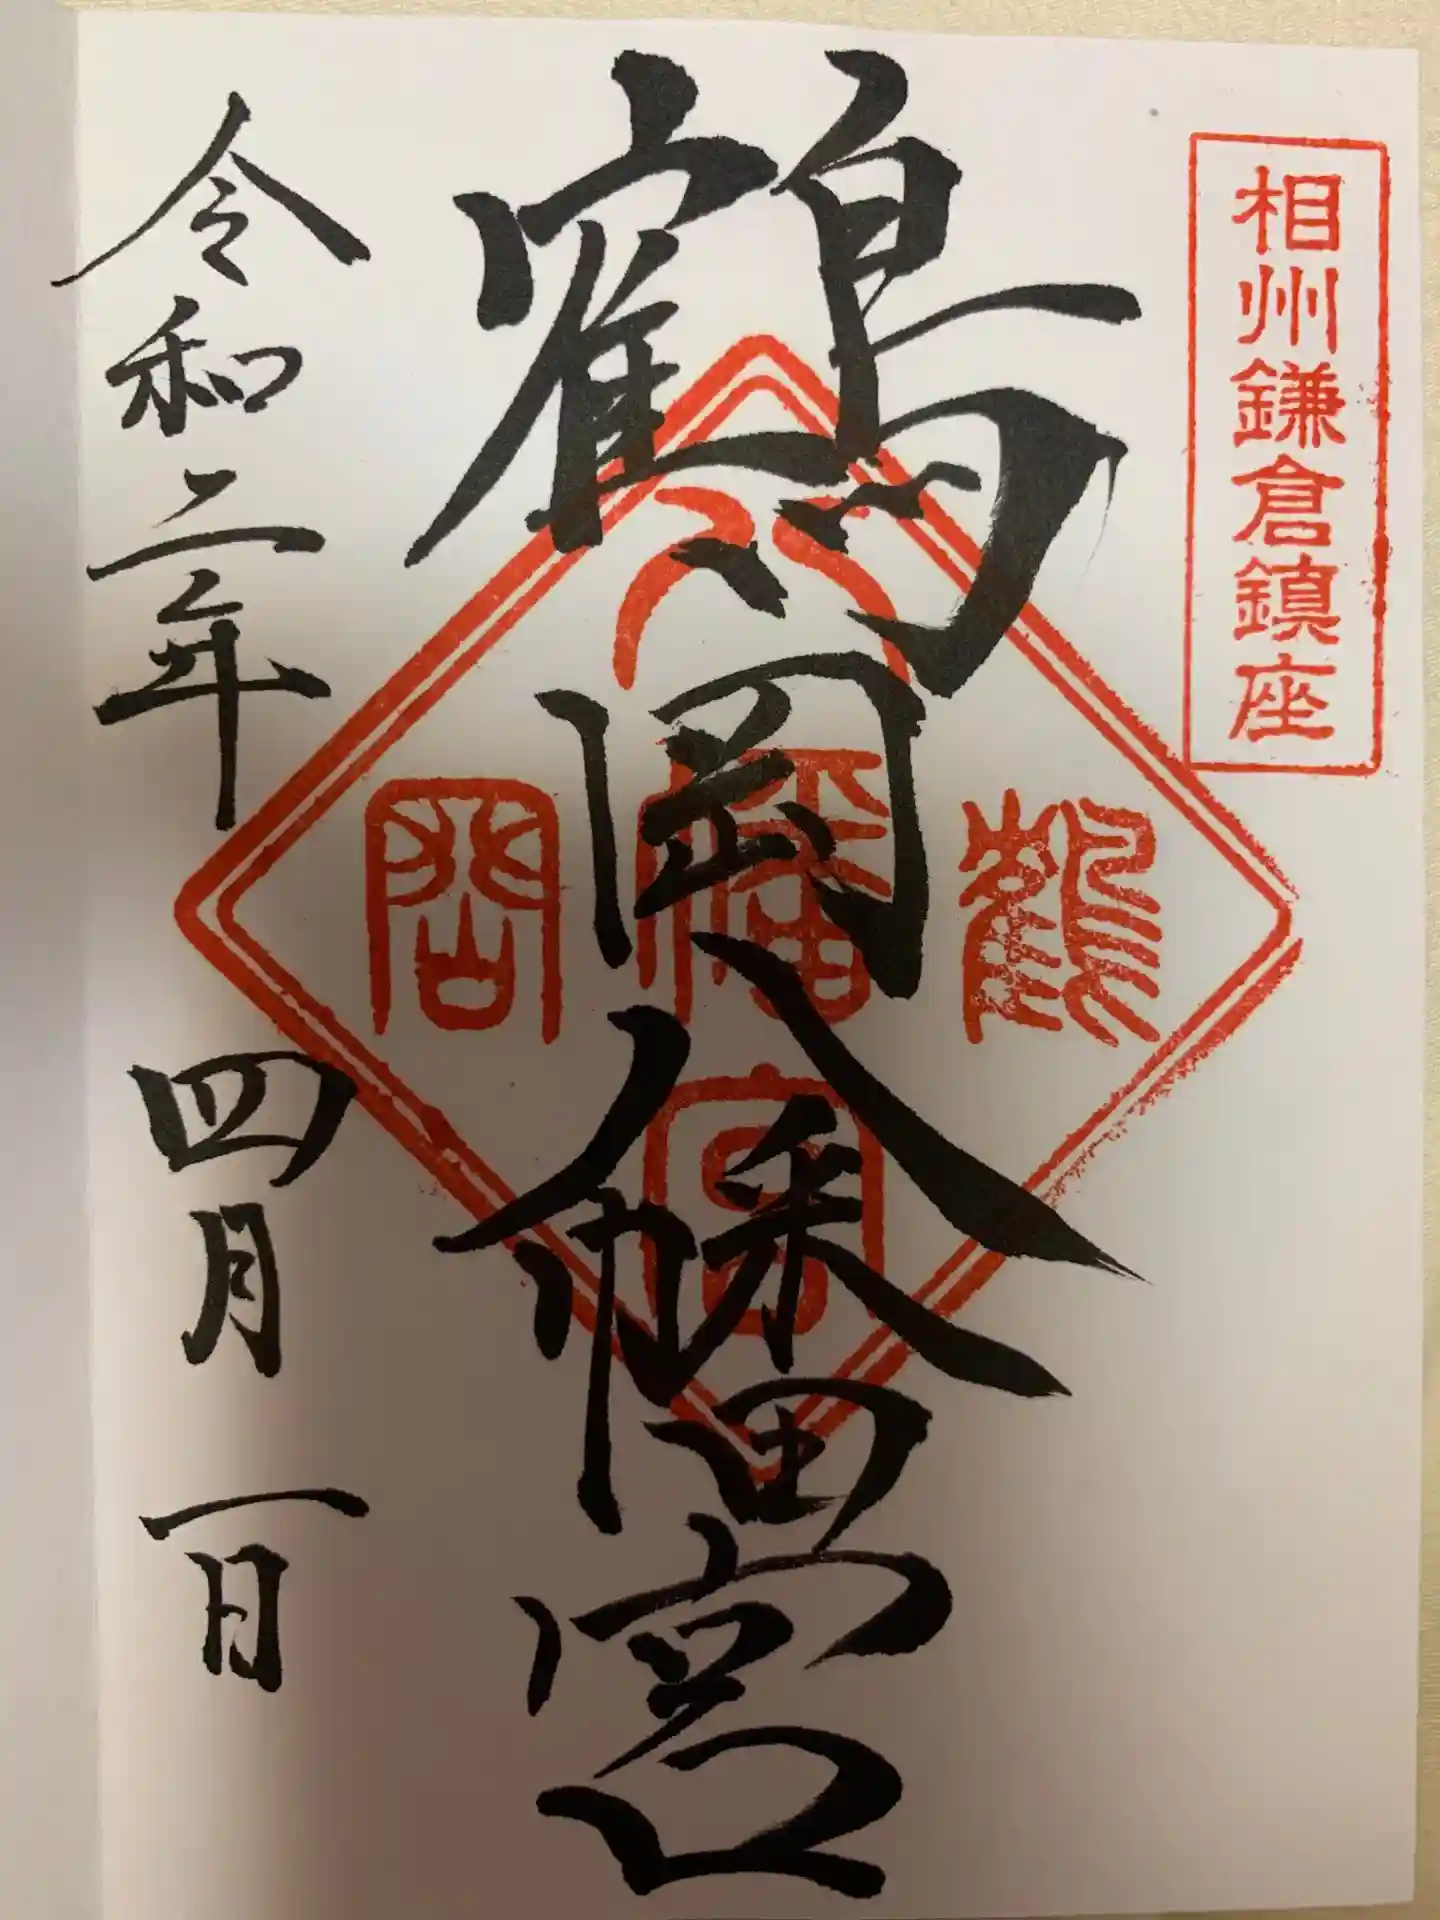 相州鎌倉鎮座
鶴岡八幡宮
八
鶴幡岡
宮
令和二年 四月一日